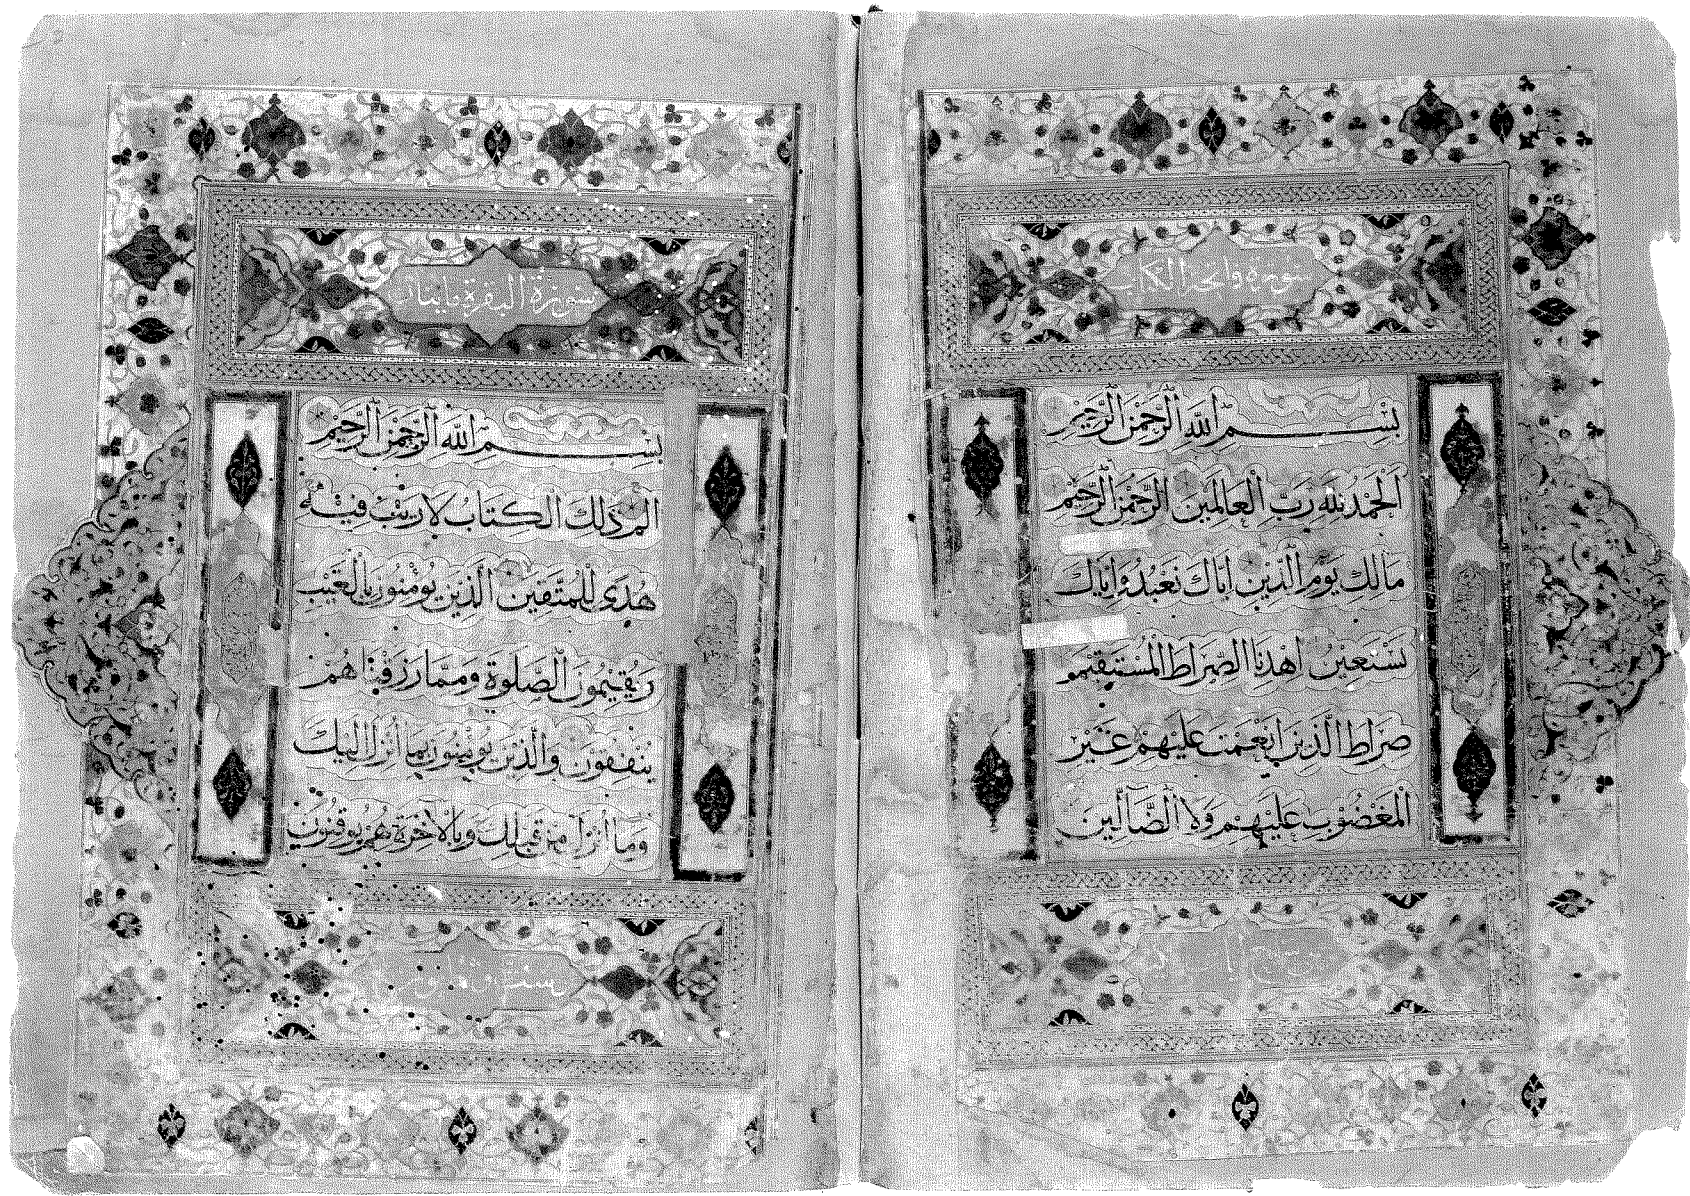 سورة فاتحة الكتاب
بِسْمِ اللّٰهِ الرَّحْمٰنِ الرَّحِيْمِ
اَلْحَمْدُ لِلّٰهِ رَبِّ الْعَالَمِيْنَ الرَّحْمٰنِ الرَّحِيْمِ
مَالِكِ يَوْمِ الدِّيْنِ اِيَّاكَ نَعْبُدُ وَاِيَّاكَ
نَسْتَعِيْنُ اِهْدِنَا الصِّرَاطَ الْمُسْتَقِيْمَ
صِرَاطَ الَّذِيْنَ اَنْعَمْتَ عَلَيْهِمْ غَيْرِ
الْمَغْضُوْبِ عَلَيْهِمْ وَلَا الضَّآلِّيْنَ
سورة البقرة مايتان
بِسْمِ اللّٰهِ الرَّحْمٰنِ الرَّحِيْمِ
الٓمٓ ذٰلِكَ الْكِتَابُ لَا رَيْبَ فِيْهِ
هُدًى لِلْمُتَّقِيْنَ الَّذِيْنَ يُؤْمِنُوْنَ بِالْغَيْبِ
وَيُقِيْمُوْنَ الصَّلٰوةَ وَمِمَّا رَزَقْنَاهُمْ
يُنْفِقُوْنَ وَالَّذِيْنَ يُؤْمِنُوْنَ بِمَا اُنْزِلَ اِلَيْكَ
وَمَا اُنْزِلَ مِنْ قَبْلِكَ وَبِالْاٰخِرَةِ هُمْ يُوْقِنُوْنَ